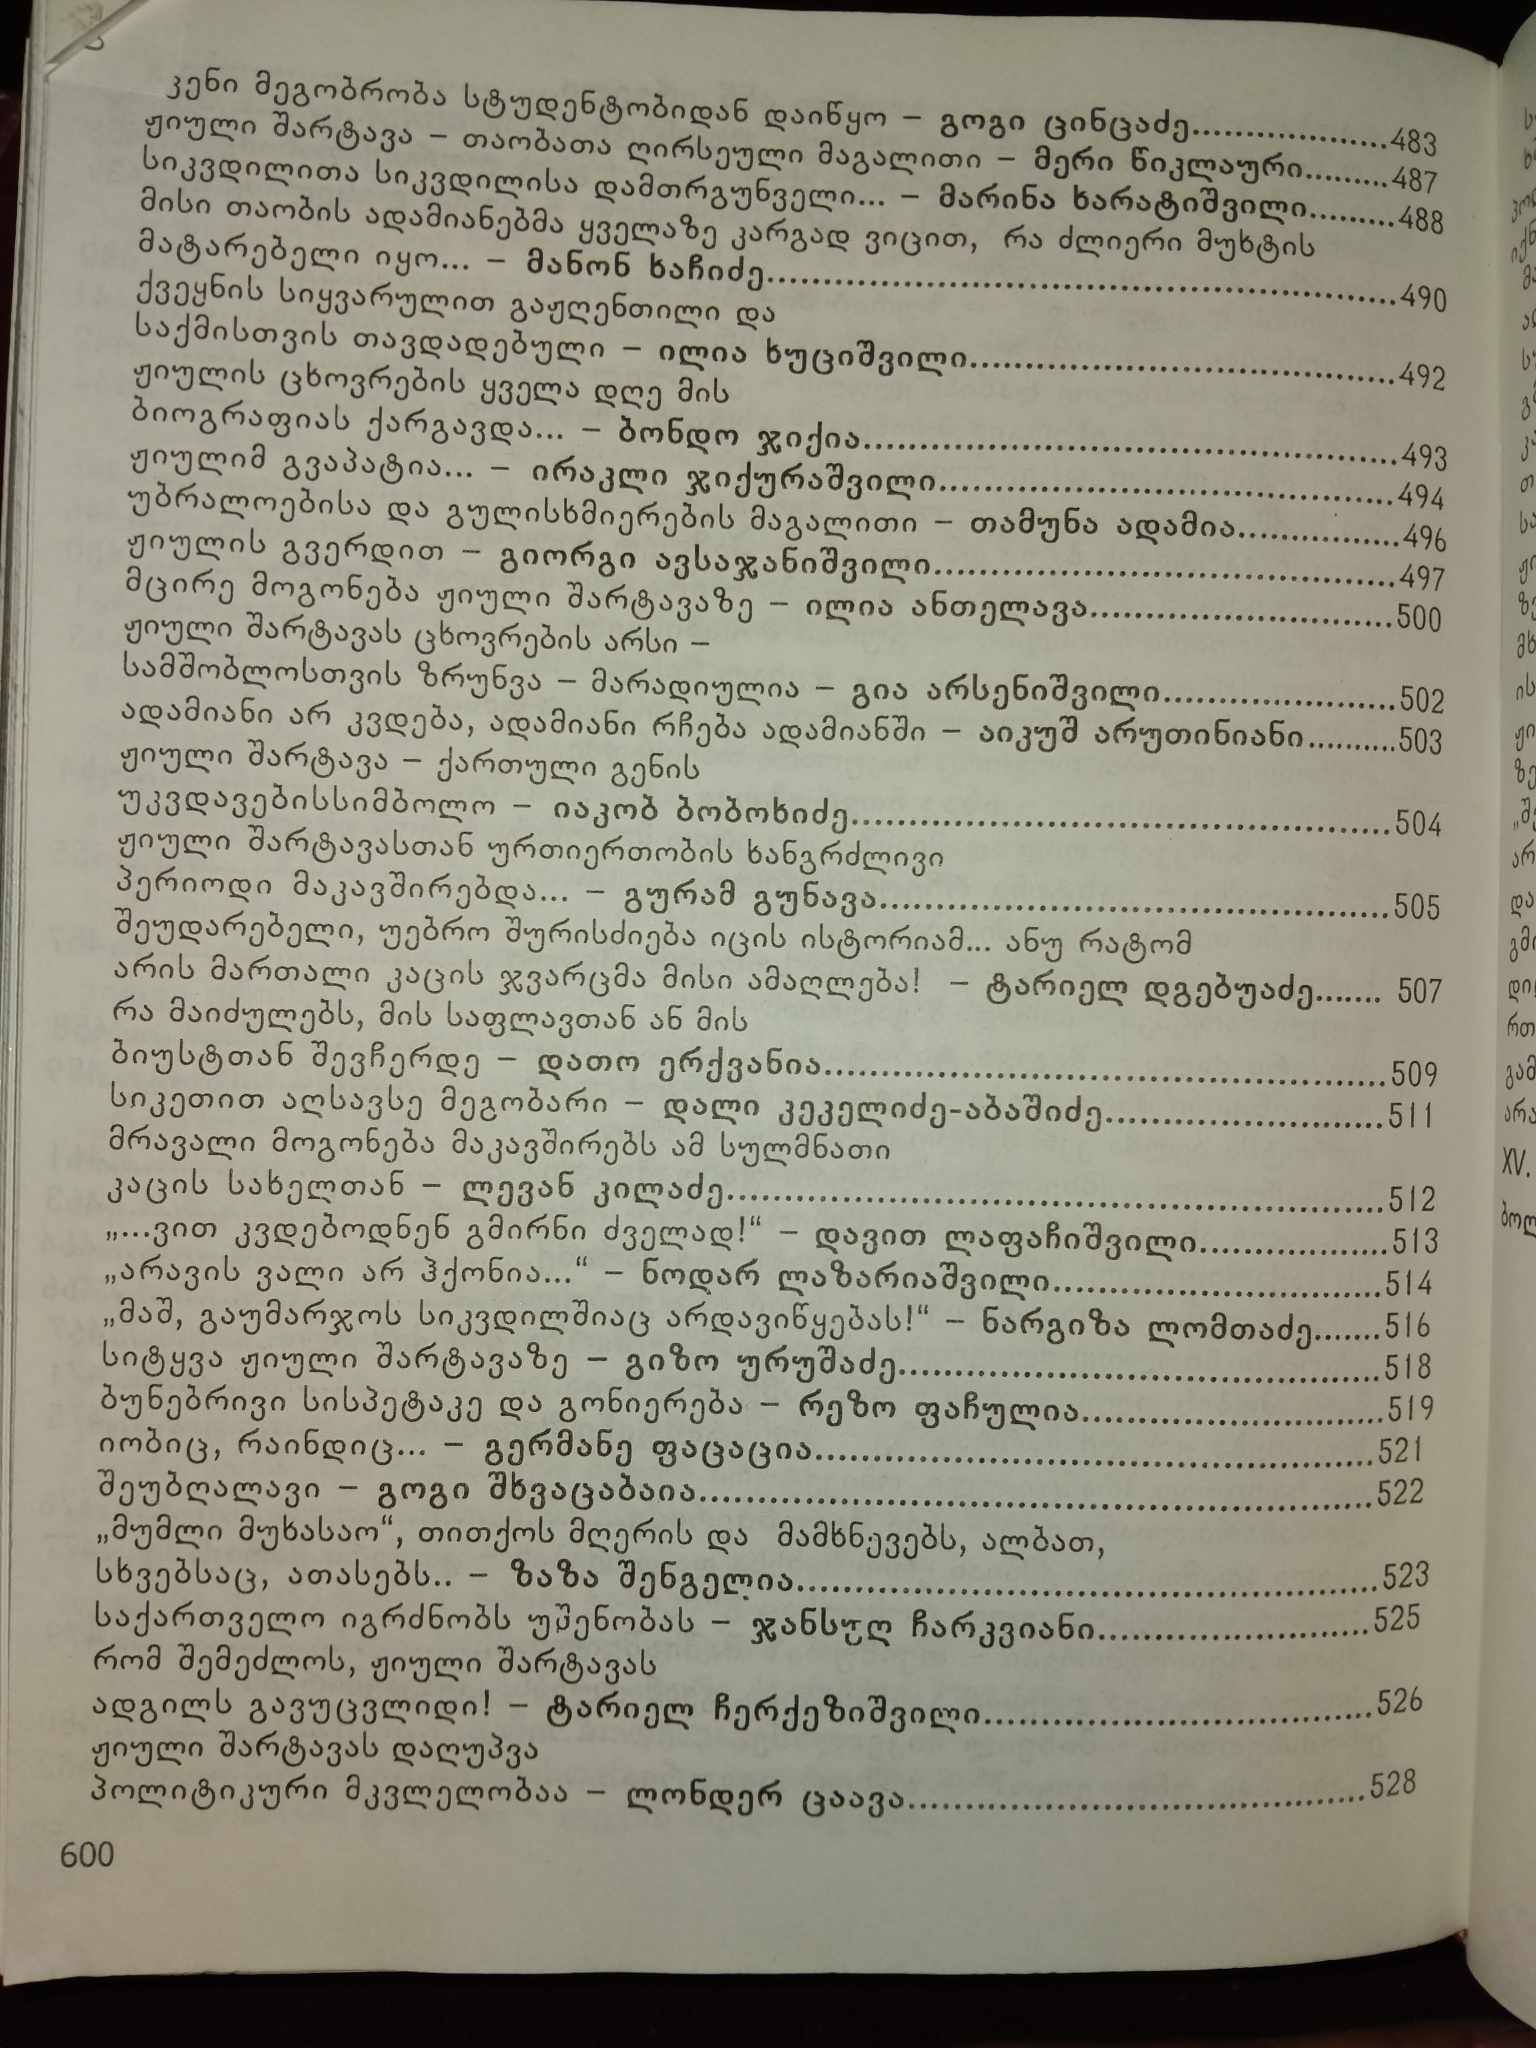 კენი მეგობრობა სტუდენტობიდან დაიწყო – გოგი ცინცაძე...................483
ჟიული შარტავა – თაობათა ღირსეული მაგალითი – მერი წიკლაური.........487
სიკვდილითა სიკვდილისა დამთრგუნველი... – მარინა ხარატიშვილი.........488
მისი თაობის ადამიანებმა ყველაზე კარგად ვიცით, რა ძლიერი მუხტის
მატარებელი იყო... – მანონ ხაჩიძე.........................................................490
ქვეყნის სიყვარულით გაჟღენთილი და
საქმისთვის თავდადებული – ილია ხუციშვილი......................................492
ჟიულის ცხოვრების ყველა დღე მის
ბიოგრაფიას ქარგავდა... – ბონდო ჯიქია................................................493
ჟიულიმ გვაპატია... – ირაკლი ჯიქურაშვილი........................................494
უბრალოებისა და გულისხმიერების მაგალითი – თამუნა ადამია...............496
ჟიულის გვერდით – გიორგი ავსაჯანიშვილი.........................................497
მცირე მოგონება ჟიული შარტავაზე – ილია ანთელავა...........................500
ჟიული შარტავას ცხოვრების არსი –
სამშობლოსთვის ზრუნვა – მარადიულია – გია არსენიშვილი.....................502
ადამიანი არ კვდება, ადამიანი რჩება ადამიანში – აიკუშ არუთინიანი..........503
ჟიული შარტავა – ქართული გენის
უკვდავებისსიმბოლო – იაკობ ბობოხიძე................................................504
ჟიული შარტავასთან ურთიერთობის ხანგრძლივი
პერიოდი მაკავშირებდა... – გურამ გუნავა..............................................505
შეუდარებელი, უებრო შურისძიება იცის ისტორიამ... ანუ რატომ
არის მართალი კაცის ჯვარცმა მისი ამაღლება! – ტარიელ დგებუაძე....... 507
რა მაიძულებს, მის საფლავთან ან მის
ბიუსტთან შევჩერდე – დათო ერქვანია..................................................509
სიკეთით აღსავსე მეგობარი – დალი კეკელიძე-აბაშიძე.........................511
მრავალი მოგონება მაკავშირებს ამ სულმნათი
კაცის სახელთან – ლევან კილაძე...........................................................512
„...ვით კვდებოდნენ გმირნი ძველად!“ – დავით ლაფაჩიშვილი.................513
„არავის ვალი არ ჰქონია...“ – ნოდარ ლაზარიაშვილი.............................514
„მაშ, გაუმარჯოს სიკვდილშიაც არდავიწყებას!“ – ნარგიზა ლომთაძე.......516
სიტყვა ჟიული შარტავაზე – გიზო ურუშაძე...........................................518
ბუნებრივი სისპეტაკე და გონიერება – რეზო ფაჩულია...........................519
იობიც, რაინდიც... – გერმანე ფაცაცია..................................................521
შეუბღალავი – გოგი შხვაცაბაია............................................................522
„მუმლი მუხასაო“, თითქოს მღერის და მამხნევებს, ალბათ,
სხვებსაც, ათასებს.. – ზაზა შენგელია....................................................523
საქართველო იგრძნობს უშენობას – ჯანსუღ ჩარკვიანი........................525
რომ შემეძლოს, ჟიული შარტავას
ადგილს გავუცვლიდი! – ტარიელ ჩერქეზიშვილი...................................526
ჟიული შარტავას დაღუპვა
პოლიტიკური მკვლელობაა – ლონდერ ცაავა.........................................528
600
XV.